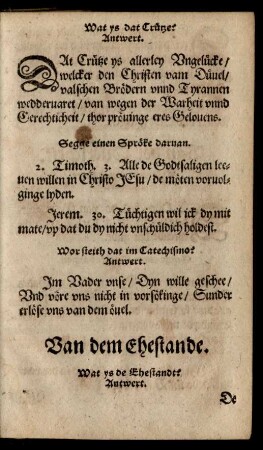 Wat ys dat Crütze?
Antwert.
DAt Crütze ys allerley Vngelücke/
welcker den Christen vam Düuel/
valschen Brödern vnnd Tyrannen
wedderuaret/ van wegen der Warheit vnnd
Gerechticheit/ thor pröuinge eres Gelouens.
Segge einen Spröke daruan.
2. Timoth. 3. Alle de Godtsaligen lee-
uen willen in Christo JEsu/ de möten voruol-
ginge lyden.
Jerem. 30. Tüchtigen wil ick dy mit
mate/ vp dat du dy nicht vnschüldich holdest.
Wor steith dat im Catechismo?
Antwert.
Im Vader vnse/ Dyn wille geschee/
Vnd vöre vns nicht in vorsökinge/ Sunder
erlöse vns van dem övel.
Van dem Ehestande.
Wat ys de Ehestandt?
Antwert.
De